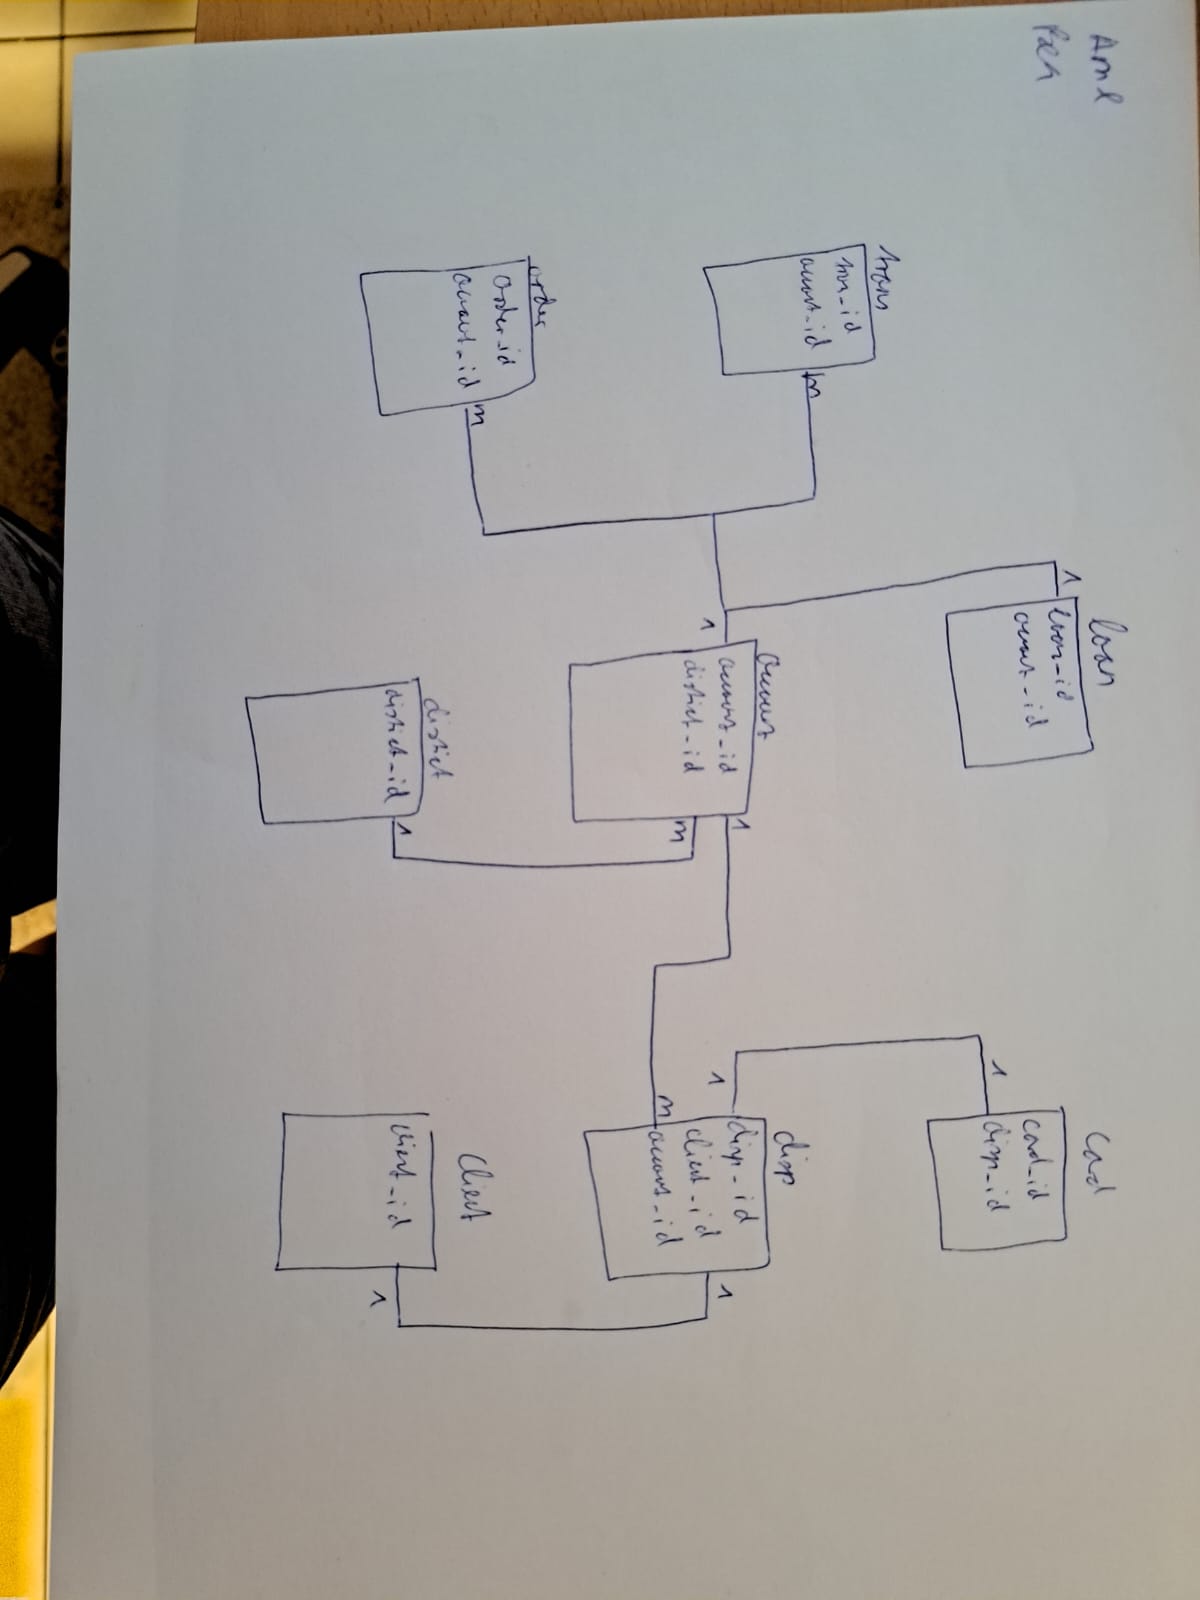 loan
1
loan_id
account_id
card
card_id
disp_id
1
trans
trans_id
account_id
m
account
account_id
district_id
1
1
m
disp
disp_id
client_id
account_id
1
m
1
order
order_id
account_id
m
district
district_id
1
client
client_id
1